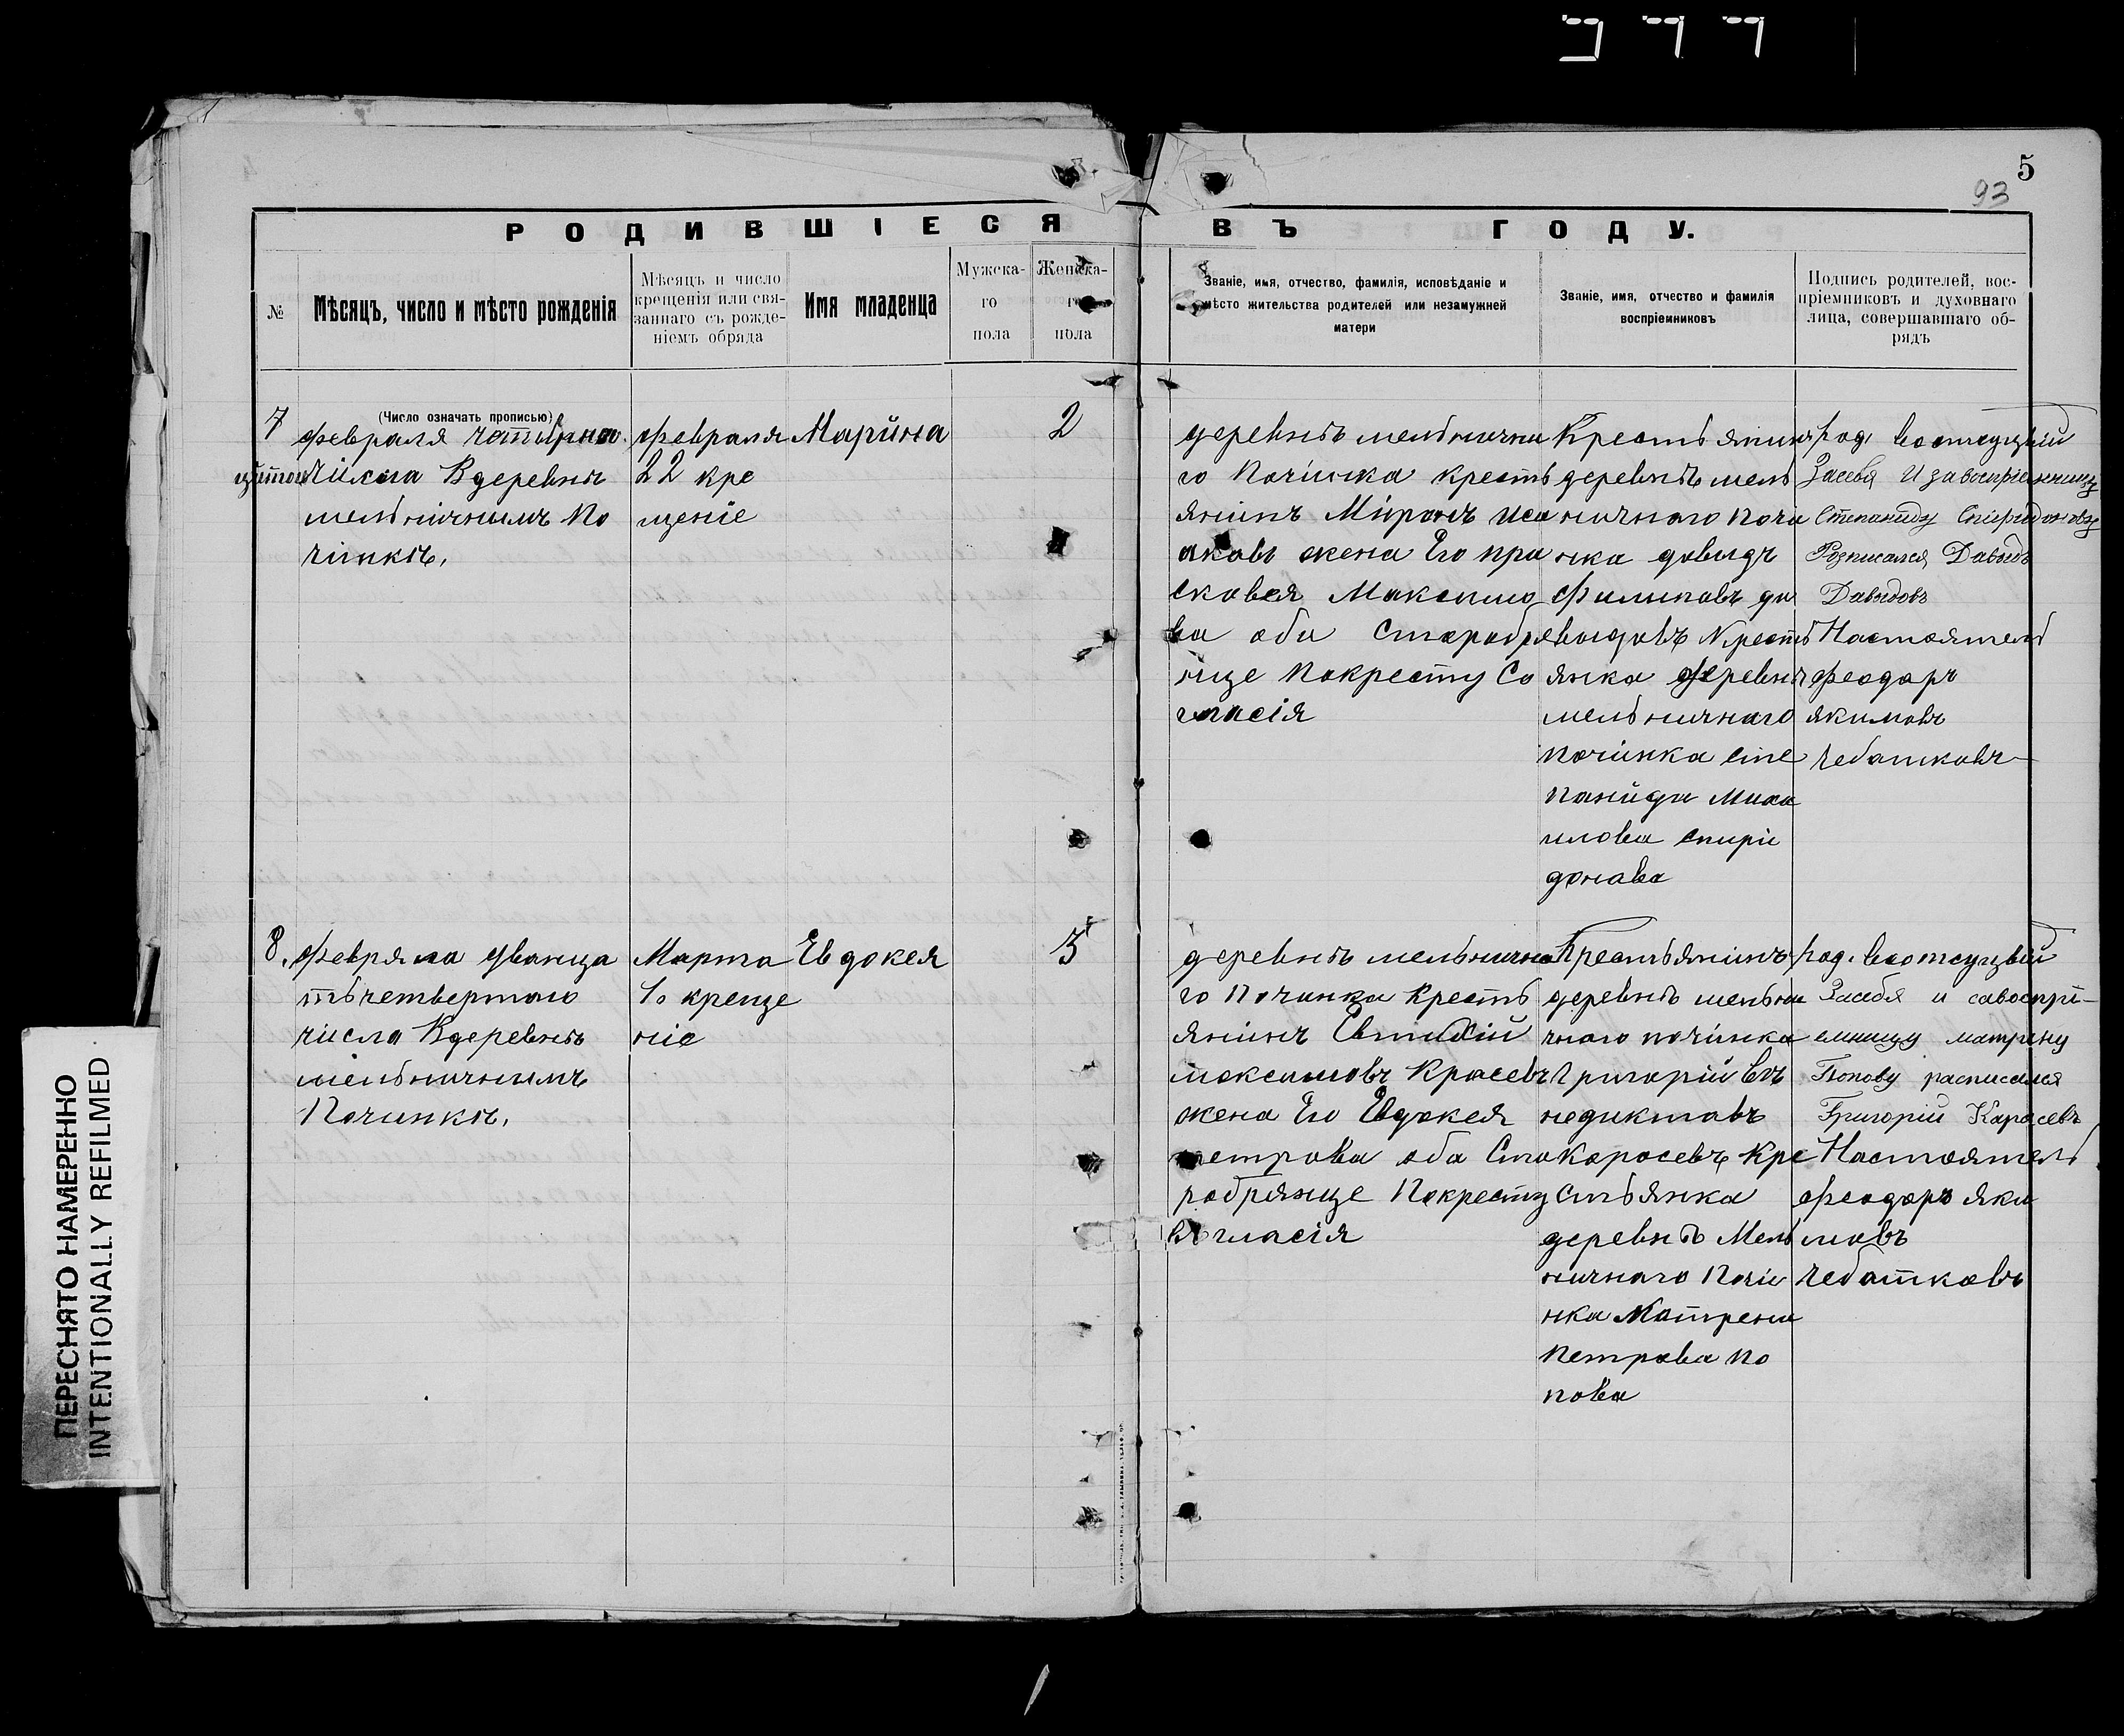 5
93
РОДИВШІЕСЯ ВЪ ГОДУ.
№
Мѣсяцъ, число и мѣсто рожденія
Мѣсяцъ и число
крещенія или свя-
заннаго съ рожде-
ніемъ обряда
Имя младенца
Мужска-
го
пола
Женска-
го
пола
Званіе, имя, отчество, фамилія, исповѣданіе и
мѣсто жительства родителей или незамужней
матери
Званіе, имя, отчество и фамилія
воспріемниковъ
Подпись родителей, вос-
пріемниковъ и духовнаго
лица, совершавшаго об-
рядъ
(Число означать прописью)
7
февраля четырна
цатои числа Вдеревнѣ
мельничнымъ По
чинкѣ,
февраля
22 кре
щеніе
Марина
2
деревнѣ мельнична
го Починка кресть
янинъ Миронъ Иса
аковъ жена Его пра
сковея Максимо
ва оба Старобря
нце Покресту Со
гласія
Крестьянинъ
деревнѣ мель
ничнаго почи
нка довыдъ
Филиповъ да
выдовъ Кресть
янка деревнѣ
мельничнаго
починка сте
панида Миха
илова спири
донава
род. воотсуцвiи
Засебя И завоспріемницу
Степаниду Спиридонову
Розписался Давыдъ
Давыдовъ
Настоятель
феодоръ
якимовъ
чебатковъ
8.
Февряла дванца
тьчетвертаго
числа Вдеревнѣ
мельничнымъ
Починкѣ.
Марта
1о креще
ніе
Евдокея
3
деревнѣ мельнична
го Починка Кресть
янинъ
максимовъ Красевъ
жена Его Евдокея
петрова оба Ста
робрянце Покресту
согласія
Крестьянинъ
деревнѣ мельни
чнаго починка
Григорий Ве
недиктавъ
Коросевъ Кре
стьянка
деревнѣ Мель
ничнаго Почи
нка Матрена
Петрова По
пова
род. воотсуцвiи
Засебя и савоспрі-
емницу матрену
Попову расписался
Григорій Карасевъ
Настоятель
феодоръ яки
мовъ
чебатковъ
ПЕРЕСНЯТО НАМЕРЕННО
INTENTIONALLY REFILMED